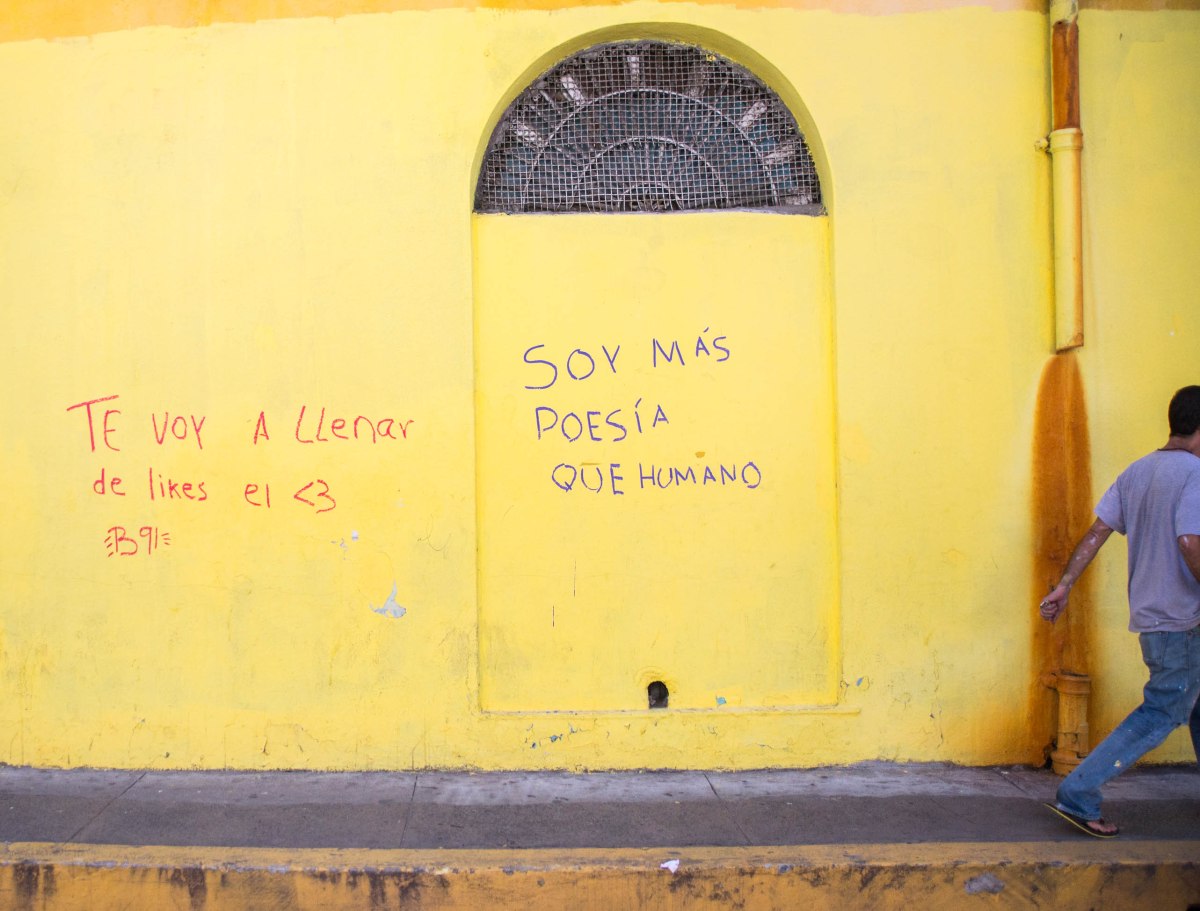 TE VOY A LLenar
de likes el <3
B91
SOY MÁS
POESÍA
QUE HUMANO